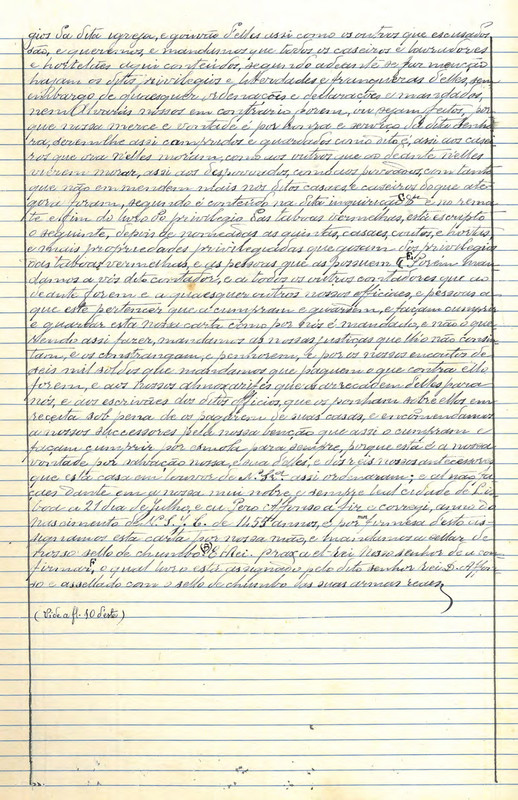 gios da dita igreja, e gouvão delles assi como os outros que escusados
são, e queremos, e mandamos que todos os caseiros e lavradores
e hortelões aqui conteúdos, segundo adeante se faz menção
hajam os ditos privilegios e liberdades e franquezas delles, sem
embargo de quaesquer ordenações e declarações e mandados
nem Alvarás nossos em contrario forem, ou sejam feitos, por
que nossa merce e vontade é por honra e serviço da dita Senho
ra, serem lhe assi cumpridos e guardados como dito é, assi aos casei
ros que ora nelles moram, como aos outros que ao deante nelles
vierem morar, assi aos despovoados, como aos povoados, com tanto
que não emmendem mais nos ditos casaes e caseiros do que até
gora foram, segundo é conteúdo na dita inquirição e no rema
te e fim do livro do privilegio das taboas vermelhas, está escripto
o seguinte, depois de nomeadas as quintas, casaes, coutos, e hortas
e mais propriedades privilegiadas que gozam dos privilegios
das taboas vermelhas, e as pessoas que as possuem E Porém man
damos a vós dito contador, e a todos os outros contadores que ao
deante forem e a quaesquer outros nossos officiaes, e pessoas a
que este pertencer que a cumpram e guardem, e façam cumprir
e guardar esta nossa carta como por nós é mandado, e não o que
rendo assi fazer, mandamos as nossas justiças que lho não consin
tam, e os constrangam, e penhorem, e por os nossos encoutos de
seis mil soldos que mandamos que paguem o que contra ello
forem, e aos nossos almoxarifes que os arrecadem delles para
nós, e aos escrivães dos ditos officios, que os ponham sobre elles em
receita sob pena de os pagarem de suas casas, e encomendamos
a nossos successores pela nossa benção que assi o cumpram e
façam cumprir por esmola para sempre, porque esta é a nossa
vontade por salvação nossa, e sua delles, e dos reis nossos antecessores
que esta casa em louvor de N. Sra. assi ordenaram; e al não fa
çaes Dante em a nossa mui nobre e sempre leal cidade de Lis
boa a 21 dia de julho, e eu Pero Affonso a fiz e corregi, anno do
Nascimento de N. S. J. C. de 1455 annos, e por firmesa desto as-
signamos esta carta por nossa mão, e mandamos a sellar de
nosso sello de chumbo El Rei. praz a el-rei nosso senhor de a con
firmar, o qual livro está assignado pelo dito senhor rei D. Affon
so e assellado com o sello de chumbo das suas armas reaes
(Vide a fl. 10 desta)